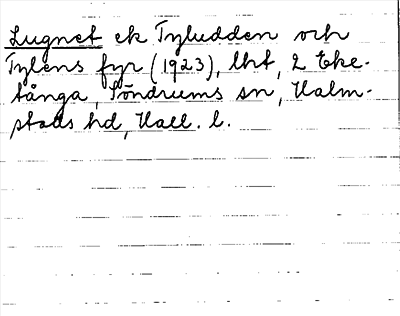 Lugnet ek Tyludden och
Tylens fyr (1923), lht, 2 Eke-
tånga, Söndrums sn, Halm-
stads hd, Hall. l.